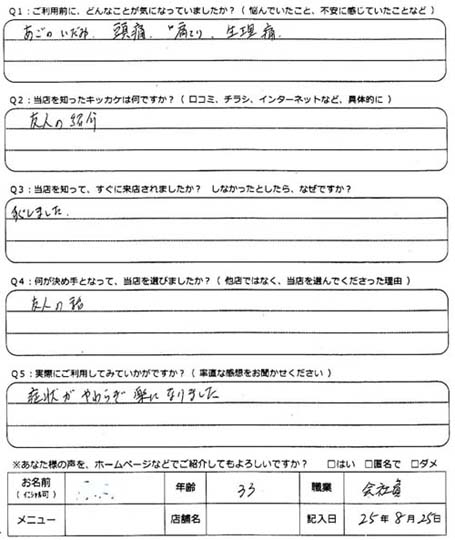 Q1：ご利用前に、どんなことが気になっていましたか？（ 悩んでいたこと、不安に感じていたことなど ）
あごのいたみ、頭痛、肩こり、生理痛.
Q2：当店を知ったキッカケは何ですか？（ 口コミ、チラシ、インターネットなど、具体的に ）
友人の紹介
Q3：当店を知って、すぐに来店されましたか？　しなかったとしたら、なぜですか？
しました.
Q4：何が決め手となって、当店を選びましたか？（ 他店ではなく、当店を選んでくださった理由 ）
友人の話
Q5：実際にご利用してみていかがですか？（ 率直な感想をお聞かせください ）
症状がやわらぎ楽になりました
※あなた様の声を、ホームページなどでご紹介してもよろしいですか？　□はい　□匿名で　□ダメ
お名前（イニシャル可）　年齢　33　職業　会社員
メニュー　店舗名　記入日　25年8月25日